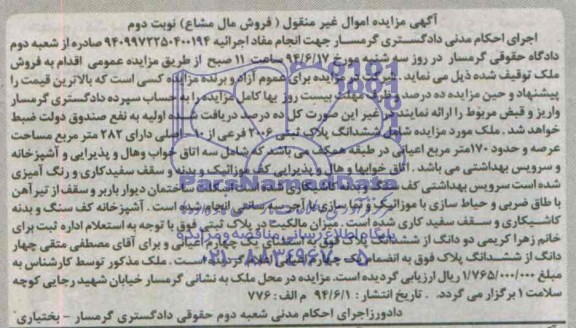 آگهی مزایده اموال غیر منقول ( فروش مال مشاع) نوبت دوم
اجرای احکام مدنی دادگستری گرمسار جهت انجام مفاد اجرائیه ۹۴۰۹۹۷۲۲۵۰۴۰۰۱۹۴ صادره از شعبه دوم
دادگاه حقوقی گرمسار در روز سه شنبه مورخ ۹۴/۶/۱۷ ساعت ۱۱ صبح از طریق مزایده عمومی اقدام به فروش
ملک توقیف شده ذیل می نماید. شرکت در مزایده برای عموم آزاد و برنده مزایده کسی است که بالاترین قیمت را
پیشنهاد و حین مزایده ده درصد و ظرف مهلت بیست روز بها کامل مزایده را به حساب سپرده دادگستری گرمسار
واریز و قبض مربوط را ارائه نمایند در غیر این صورت کل ده درصد دریافت شده اولیه به نفع صندوق دولت ضبط
خواهد شد. ملک مورد مزایده شامل ششدانگ پلاک ثبتی ۲۰۰۶ فرعی از ۱۰ اصلی دارای ۲۸۲ متر مربع مساحت
عرصه و حدود ۱۷۰ متر مربع اعیانی در طبقه همکف می باشد که شامل سه اتاق خواب وهال و پذیرایی و آشپزخانه
و سرویس بهداشتی می باشد. اتاق خوابها و هال و پذیرایی کف موزائیک و بدنه و سقف سفیدکاری و رنگ آمیزی
شده است سرویس بهداشتی کف ساختمان دیوار باربر و سقف از تیر آهن
با طاق ضربی و حیاط سازی با موزائیک و نما سازی با آجر سه سانتی انجام شده است. آشپزخانه کف سنگ و بدنه
کاشیکاری و سقف سفید کاری شده است. میزان مالکیت در پلاک ثبتی فوق با توجه به استعلام اداره ثبت برای
خانم زهرا کریمی دو دانگ از ششدانگ پلاک فوق به استثنای یک چهارم اعیانی و برای آقای مصطفی متقی چهار
دانگ از ششدانگ پلاک فوق به انضمام یک چهارم اعیانی اعلام گردیده است. ملک مذکور توسط کارشناس به
مبلغ ۱/۷۶۵/۰۰۰/۰۰۰ ریال ارزیابی گردیده است. مزایده در محل ملک به نشانی گرمسار خیابان شهید رجایی کوچه
سلامت ۱ برگزار می گردد. تاریخ انتشار : ۹۴/۶/۱ م الف : ۷۷۶
دادورز اجرای احکام مدنی شعبه دوم حقوقی دادگستری گرمسار - بختیاری
ParsNamadData
پایگاه اطلاع رسانی مناقصه و مزایده
۰۲۱-۸۸۳۴۹۶۷۰-۵